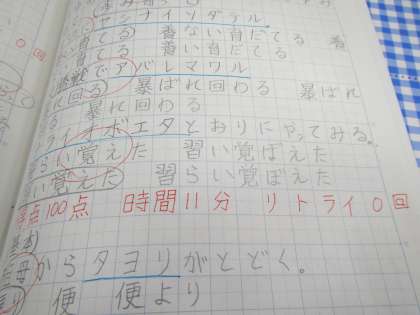 ヤシナイソダテル
育てる 養ない育だてる 養
てる 養い育だてる
でアバレマワル
れ回る 暴ばれ回わる 暴ばれ
る 暴れ回わる
ライオボエタとおりにやってみる。
らい覚えた 習い覚ぼえた
い覚えた 習らい覚ぼえた
点100点 時間11分 リトライ0回
母からタヨリがとどく。
便 便より
0回